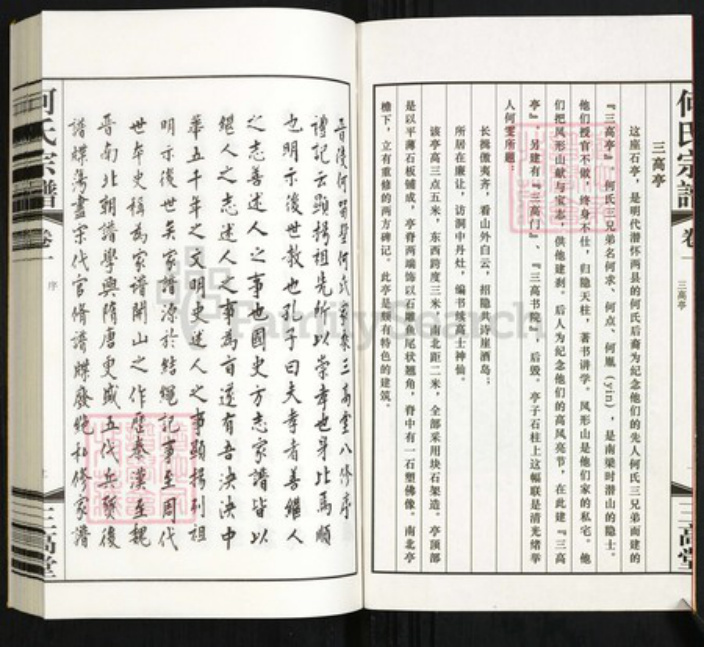 何氏宗譜
卷一
三高亭
三高堂
三高亭
这座石亭，是明代潜怀两县的何氏后裔为纪念他们的先人何氏三兄弟而建的
『三高亭』。何氏三兄弟名何求、何点、何胤（yin），是南梁时潜山的隐士。
他们授官不做，终身不仕，归隐天柱，著书讲学。凤形山是他们家的私宅。他
们把凤形山献与宝志，供他建刹。后人为纪念他们的高风亮节，在此建『三高
亭』，另建有『三高门』、『三高书院』，后毁。亭子石柱上这幅联是清光绪举
人何雯所题：
长揖傲夷齐，看山外白云，招隐共诗崖酒岛；
所居在廉让，访洞中丹灶，编书续高士神仙。
该亭高三点五米，东西跨度三米，南北距二米，全部采用块石架造。亭顶部
是以平薄石板铺成，亭脊两端饰以石雕鱼尾状翘角，脊中有一石塑佛像。南北亭
檐下，立有重修的两方碑记。此亭是颇有特色的建筑。
晋陵何皆暨何氏宗泉三高堂八修序
谱記云顯揚祖先所以崇孝也身比焉順
也明示後世教也孔子曰夫孝者善繼人
之志善述人之事也國史方志家譜皆以
繼人之志述人之事為旨遂有吾泱泱中
華五千年之文明史述人之事顯揚列祖
明示後世矣家譜源於結繩記事至周代
世本史稱為家譜開山之作歷秦漢至魏
晉南北朝譜學興隋唐更盛五代兵燹後
譜牒蕩盡宋代官修譜牒廢弛私修家譜
何氏宗譜
卷一
序
三高堂
FamilySearch